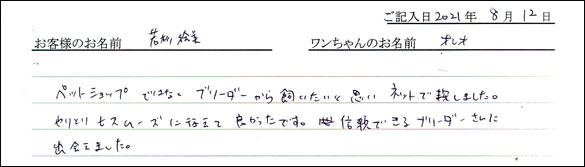 ご記入日 2021年 8月 12日
お客様のお名前 若松 絵美 ワンちゃんのお名前 オレオ
ペットショップではなくブリーダーから飼いたいと思いネットで探しました。
やりとりもスムーズに行えて良かったです。信頼できるブリーダーさんに
出会えました。